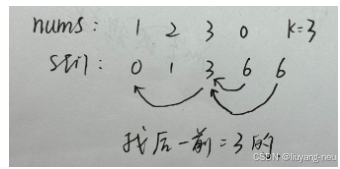 nums: 1 2 3 0 k=3
S[i]: 0 1 3 6 6
找后-前=3的
CSDN @liuyang-neu